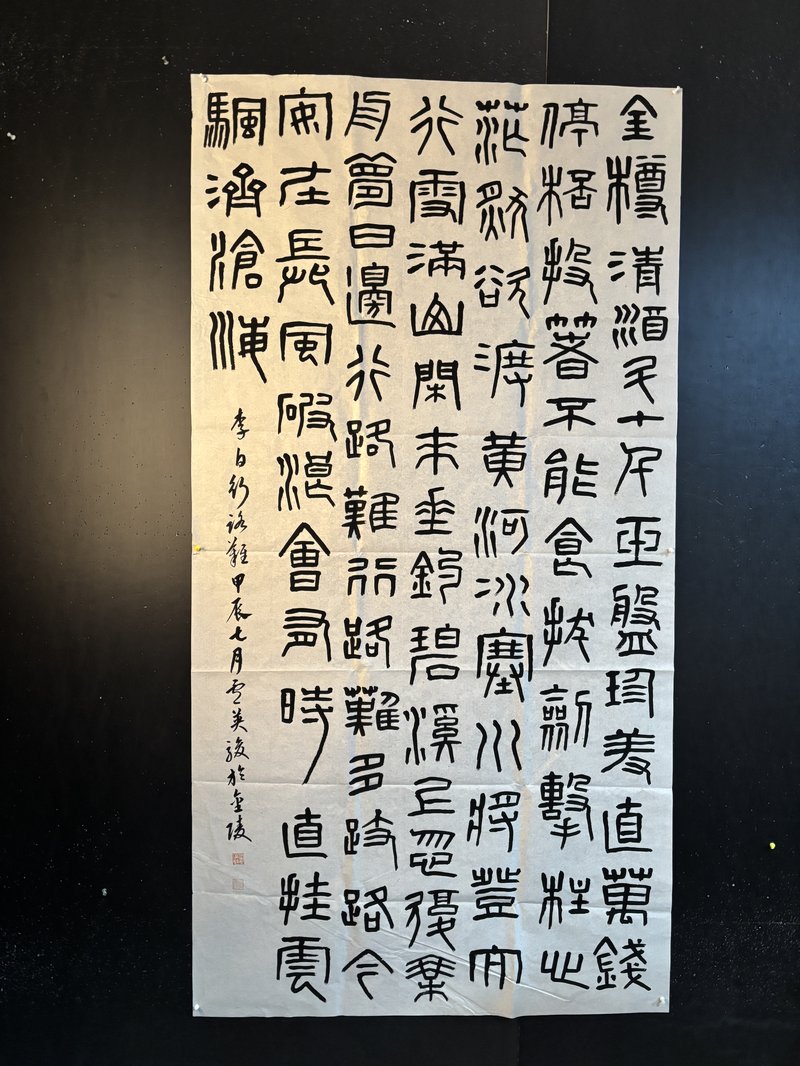 金樽清酒斗十千玉盤珍羞直萬錢
停桮投箸不能食拔劍擊柱心
茫然欲渡黃河冰塞川將登
行雪滿山閑來垂釣碧溪上忽復乘
舟夢日邊行路難行路難多歧路今
安在長風破浪會有時直挂雲
颿濟滄海
李白行路難甲辰七月英駿於金陵